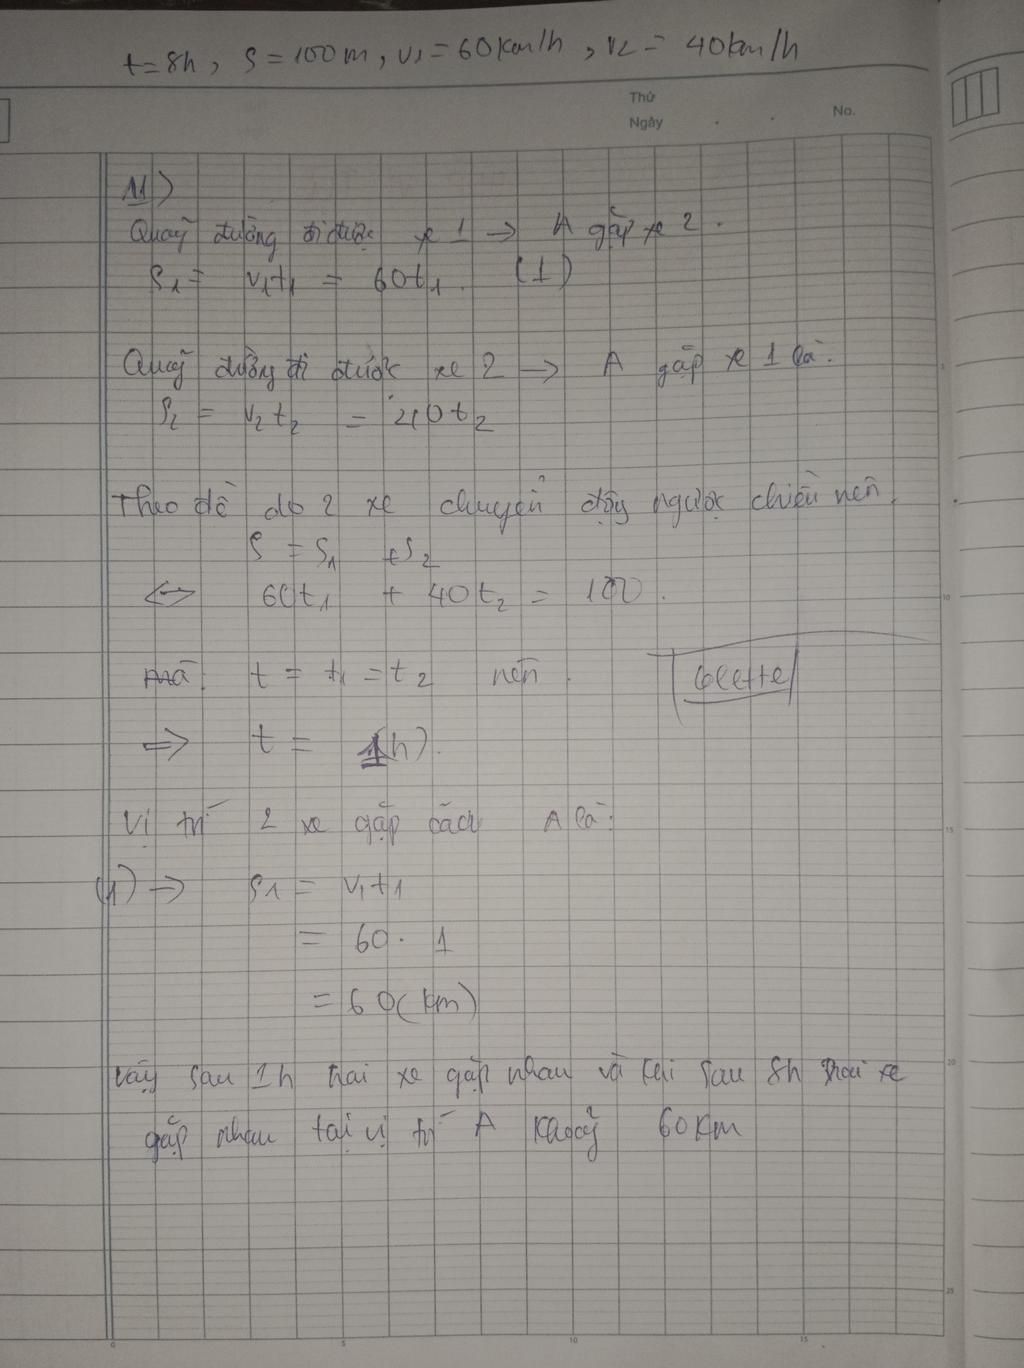 t = 8h, S = 100m, v1 = 60km/h, v2 = 40km/h
Thứ
Ngày . . No.
11)
Quãg đường đi được xe 1 → A gặp xe 2.
S1 = v1t1 = 60t1. (1)
Quãg đường đi được xe 2 → A gặp xe 1 là:
S2 = v2t2 = 40t2
Theo đề do 2 xe chuyển độg ngược chiều nên
S = S1 + S2
<-> 60t1 + 40t2 = 100.
mà t = t1 = t2 nên
=> t = 1(h).
Vị trí 2 xe gặp cách A là:
(1) → S1 = v1t1
= 60. 1
= 60(km)
Vậy sau 1h hai xe gặp nhau và khi sau 8h hai xe
gặp nhau tại vị trí A 60km
5
10
15
20
25
0 5 10 15